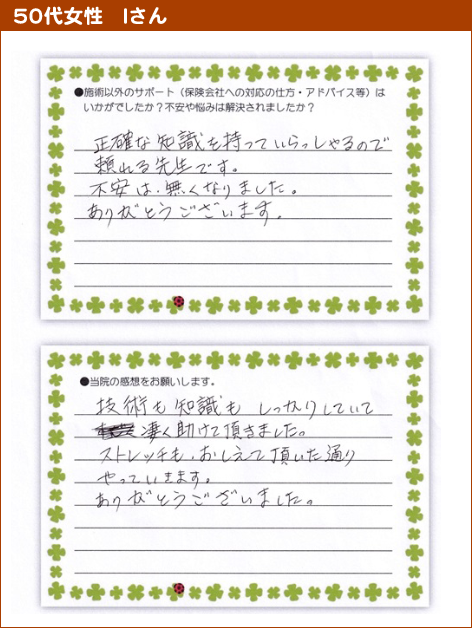 50代女性 Iさん
●施術以外のサポート（保険会社への対応の仕方・アドバイス等）は
いかがでしたか？不安や悩みは解決されましたか？
正確な知識を持っていらっしゃるので
頼れる先生です。
不安は、無くなりました。
ありがとうございます。
●当院の感想をお願いします。
技術も知識もしっかりしていて
凄く助けて頂きました。
ストレッチも、おしえて頂いた通り
やっていきます。
ありがとうございました。